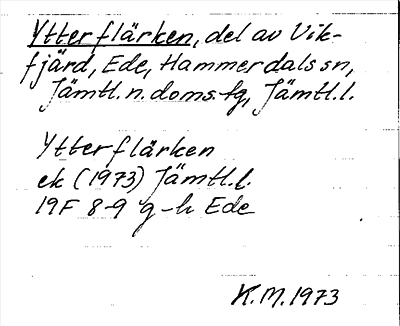 Ytterflärken, del av Vik-
fjärd, Ede, Hammerdals sn,
Jämtl. n. doms.tg, Jämtl.l.
Ytterflärken
ek (1973) Jämtl.l.
19F 8-9 g-h Ede
K.M. 1973